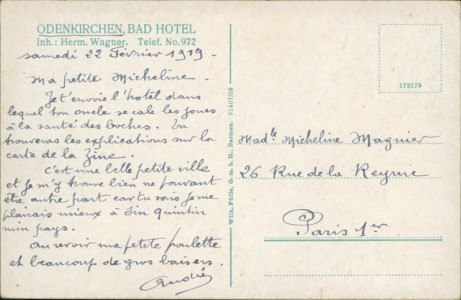 ODENKIRCHEN, BAD HOTEL
Inh.: Herm. Wagner. Telef. No. 972
samedi 22 Février 1919 -
Ma petite Micheline -
Je t'envoie l'hotel dans
lequel ton oncle se cale les joues
à la santé des boches. Tu
trouveras les explications sur la
carte de la Zine.
C'est une belle petite ville
et je m'y trouve bien ne pouvant
être autre part car tu sais je me
plairais mieux à Sin Quintin
min pays.
Au revoir ma petite poulette
et beaucoup de gros baisers.
André
Wilh. Fülle, G. m. b. H., Barmen.
173173
Madlle Micheline Magnier
26 Rue de la Reynie
Paris 1er